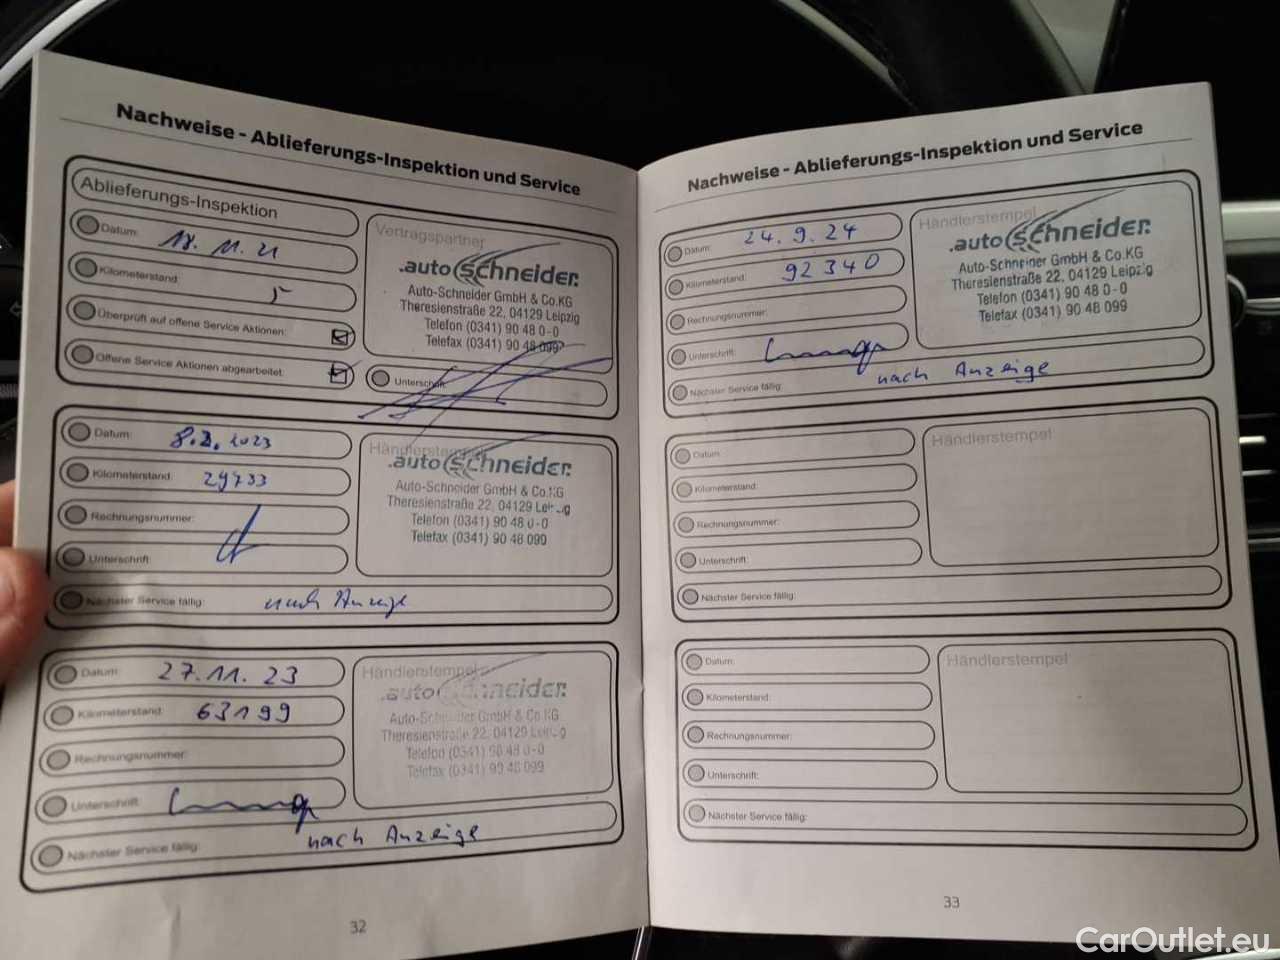 Nachweise - Ablieferungs-Inspektion und Service
Ablieferungs-Inspektion
Datum: 18.11.21
Kilometerstand: 5
Überprüft auf offene Service Aktionen:
Offene Service Aktionen abgearbeitet:
Vertragspartner
.auto Schneider.
Auto-Schneider GmbH & Co.KG
Theresienstraße 22, 04129 Leipzig
Telefon (0341) 90 48 0-0
Telefax (0341) 90 48 099
Unterschrift:
Datum: 8.2.2023
Kilometerstand: 29733
Rechnungsnummer:
Unterschrift:
Händlerstempel
.auto Schneider.
Auto-Schneider GmbH & Co.KG
Theresienstraße 22, 04129 Leipzig
Telefon (0341) 90 48 0-0
Telefax (0341) 90 48 099
Nächster Service fällig: nach Anzeige
Datum: 27.11.23
Kilometerstand: 63199
Rechnungsnummer:
Unterschrift:
Händlerstempel
.auto Schneider.
Auto-Schneider GmbH & Co.KG
Theresienstraße 22, 04129 Leipzig
Telefon (0341) 90 48 0-0
Telefax (0341) 90 48 099
Nächster Service fällig: nach Anzeige
32
Nachweise - Ablieferungs-Inspektion und Service
Datum: 24.9.24
Kilometerstand: 92340
Rechnungsnummer:
Unterschrift:
Händlerstempel
.auto Schneider.
Auto-Schneider GmbH & Co.KG
Theresienstraße 22, 04129 Leipzig
Telefon (0341) 90 48 0-0
Telefax (0341) 90 48 099
Nächster Service fällig: nach Anzeige
Datum:
Kilometerstand:
Rechnungsnummer:
Unterschrift:
Händlerstempel
Nächster Service fällig:
Datum:
Kilometerstand:
Rechnungsnummer:
Unterschrift:
Händlerstempel
Nächster Service fällig:
33
CarOutlet.eu